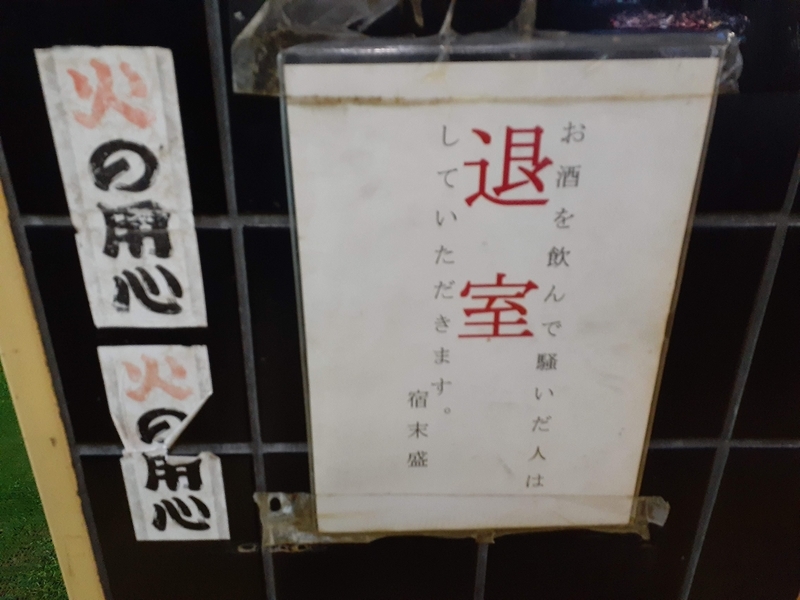 お酒を飲んで騒いだ人は
退室
していただきます。
宿末盛
火の用心
火の用心